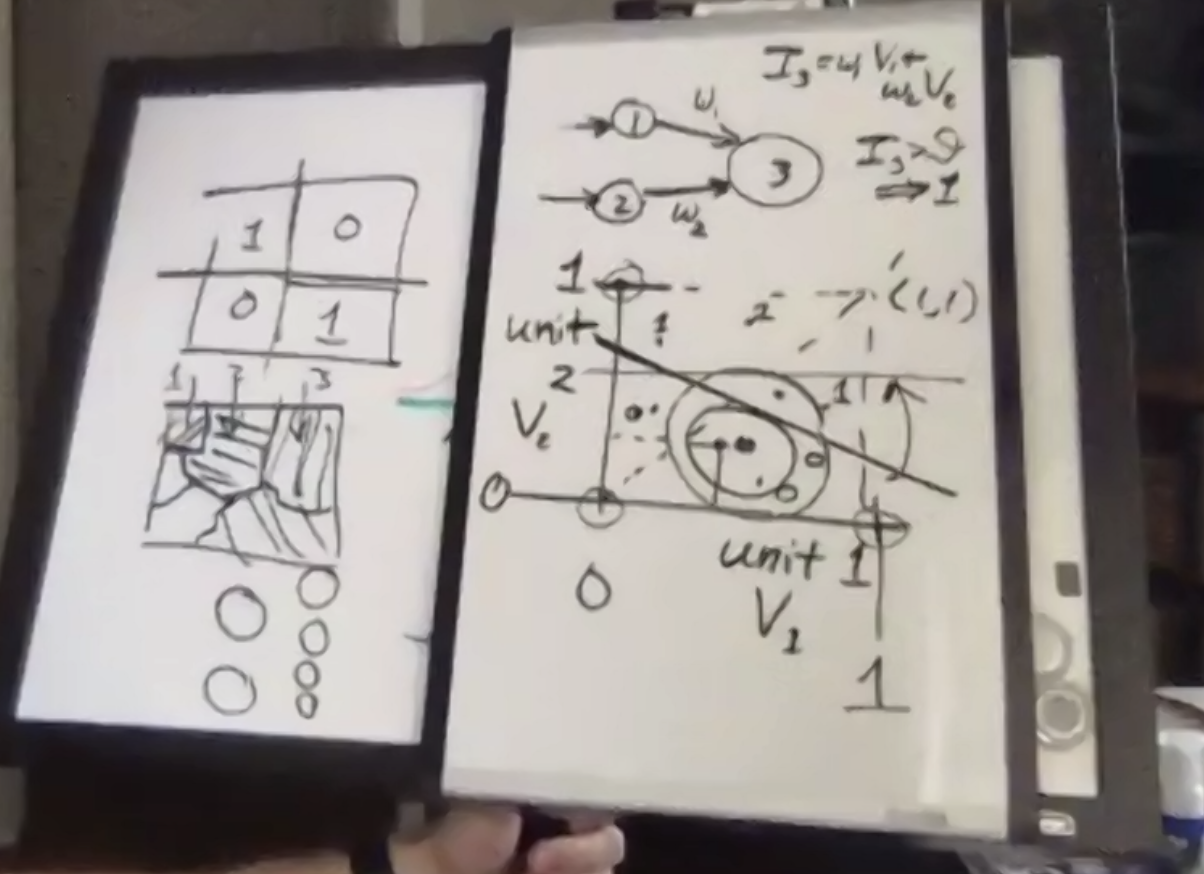 1 0
0 1
1 2 3
I₃ = w₁ V₁ +
w₂ V₂
1 w₁
3
2 w₂
I₃ > θ
⇒ 1
1
(1,1)
unit
2
V₂
1
0
unit 1
0
V₁
1